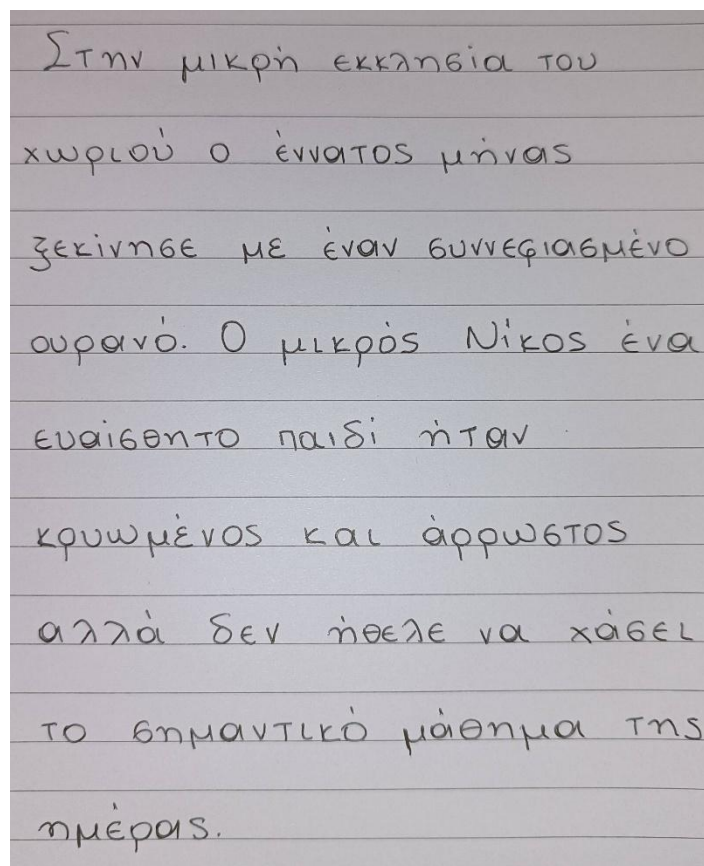 Στην μικρή εκκλησία του
χωριού ο έννατος μήνας
ξεκίνησε με έναν συννεφιασμένο
ουρανό. Ο μικρός Νίκος ένα
ευαίσθητο παιδί ήταν
κρυωμένος και άρρωστος
αλλά δεν ήθελε να χάσει
το σημαντικό μάθημα της
ημέρας.